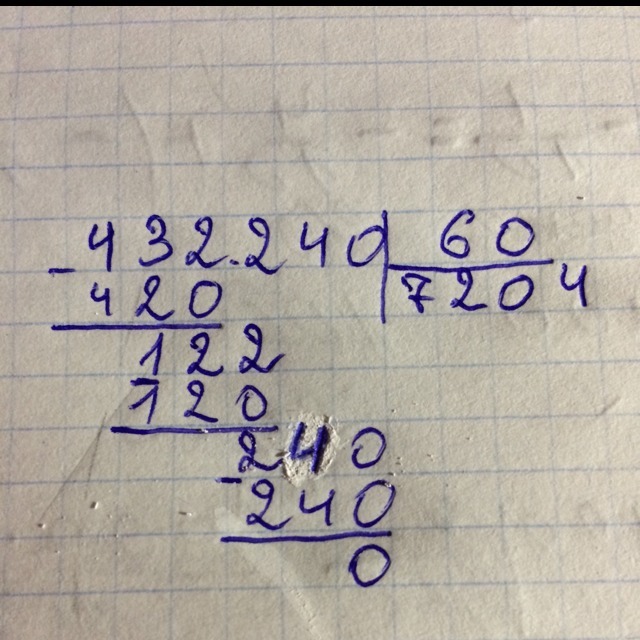 432.240 60
- 420 7204
122
- 120
240
- 240
0